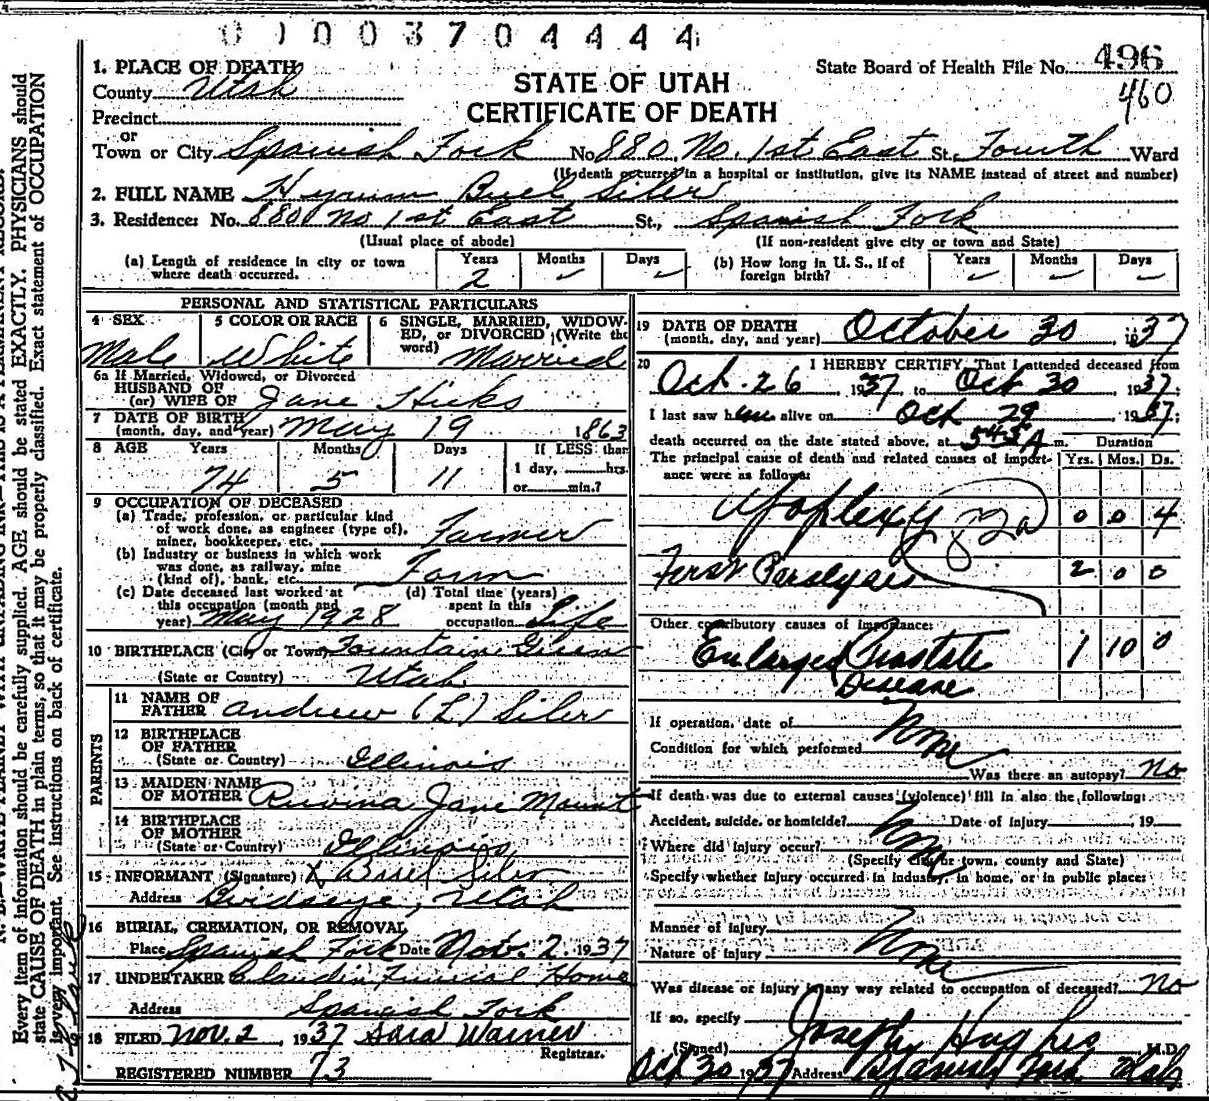 0 0 0 3 7 0 4 4 4 4
1. PLACE OF DEATH
County Utah
Precinct
or
Town or City Spanish Fork No. 880 No. 1st East St., Fourth Ward
(If death occurred in a hospital or institution, give its NAME instead of street and number)
STATE OF UTAH
CERTIFICATE OF DEATH
State Board of Health File No. 496
460
2. FULL NAME Hyrum Buel Siler
3. Residence: No. 880 No 1st East St., Spanish Fork
(Usual place of abode) (If non-resident give city or town and State)
(a) Length of residence in city or town where death occurred. Years 2 Months – Days –
(b) How long in U. S., if of foreign birth? Years – Months – Days –
PERSONAL AND STATISTICAL PARTICULARS
4 SEX Male
5 COLOR OR RACE White
6 SINGLE, MARRIED, WIDOW-
ED, or DIVORCED (Write the
word) Married
6a If Married, Widowed, or Divorced
HUSBAND OF
(or) WIFE OF Jane Hicks
7 DATE OF BIRTH
(month, day, and year) May 19 1863
8 AGE Years 74 Months 5 Days 11 If LESS than
1 day, hrs.
or min.?
9 OCCUPATION OF DECEASED
(a) Trade, profession, or particular kind
of work done, as engineer (type of),
miner, bookkeeper, etc. Farmer
(b) Industry or business in which work
was done, as railway, mine
(kind of), bank, etc. Farm
(c) Date deceased last worked at
this occupation (month and
year) May 1928
(d) Total time (years)
spent in this
occupation Life
10 BIRTHPLACE (City or Town) Fountain Green
(State or Country) Utah
PARENTS
11 NAME OF
FATHER Andrew (L.) Siler
12 BIRTHPLACE
OF FATHER
(State or Country) Illinois
13 MAIDEN NAME
OF MOTHER Ruvina Jane Mount
14 BIRTHPLACE
OF MOTHER
(State or Country) Illinois
15 INFORMANT (Signature) Siler
Address Birdseye, Utah
16 BURIAL, CREMATION, OR REMOVAL
Place Spanish Fork Date Nov. 2 1937
17 UNDERTAKER Claudin Funeral Home
Address Spanish Fork
18 FILED Nov. 2, 1937 Sara Warner
Registrar.
REGISTERED NUMBER 73
19 DATE OF DEATH
(month, day, and year) October 30, 1937
20 I HEREBY CERTIFY, That I attended deceased from
Oct. 26 1937, to Oct 30 1937;
I last saw him alive on Oct 29, 1937;
death occurred on the date stated above, at 5 45 A m. Duration
The principal cause of death and related causes of import-
ance were as follows: Yrs. Mos. Ds.
Apoplexy 82a 0 0 4
First Paralysis 2 0 0
Other contributory causes of importance:
Enlarged Prostate 1 10 0
Disease
If operation, date of None
Condition for which performed
Was there an autopsy? No
If death was due to external causes (violence) fill in also the following:
Accident, suicide, or homicide? None Date of injury , 19
Where did injury occur?
(Specify city or town, county and State)
Specify whether injury occurred in industry, in home, or in public place:
Manner of injury None
Nature of injury
Was disease or injury in any way related to occupation of deceased? No
If so, specify
(Signed) Joseph Hughes M.D.
Oct 30 1937 Address Spanish Fork Utah
Every item of information should be carefully supplied. AGE should be stated EXACTLY. PHYSICIANS should
state CAUSE OF DEATH in plain terms, so that it may be properly classified. Exact statement of OCCUPATION
is very important. See instructions on back of certificate.